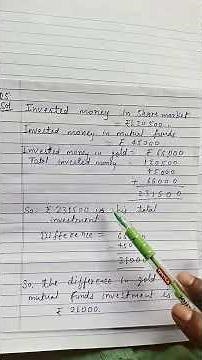 Q5.
Sol
Invested money in share market
= ₹120500
Invested money in mutual funds
= ₹ 45000
Invested money in gold = ₹ 66000
Total invested money 120500
45000
+ 66000
231500
So, ₹ 231500 is his total
investment
Difference = 
21000
So, the difference in gold
mutual funds investment is
₹ 21000.